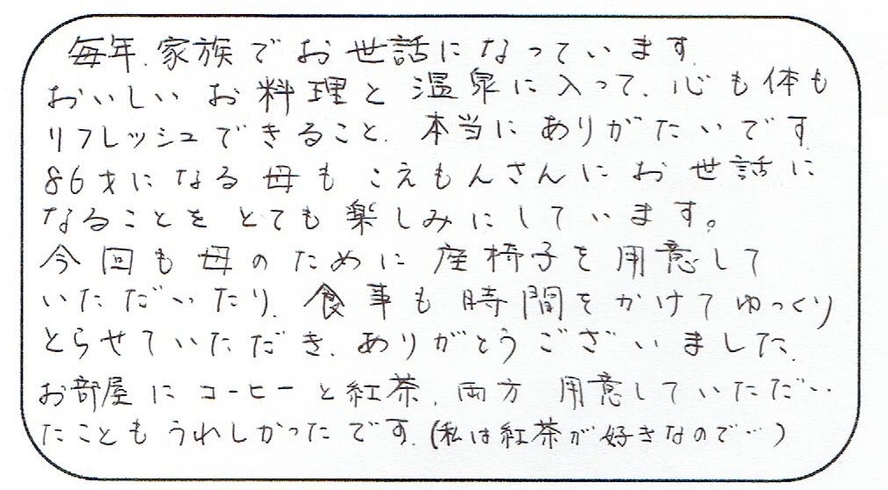 毎年、家族でお世話になっています。
おいしいお料理と温泉に入って、心も体も
リフレッシュできること、本当にありがたいです。
86才になる母もこえもんさんにお世話に
なることをとても楽しみにしています。
今回も母のために座椅子を用意して
いただいたり、食事も時間をかけてゆっくり
とらせていただき、ありがとうございました。
お部屋にコーヒーと紅茶、両方用意していただい
たこともうれしかったです。(私は紅茶が好きなので…)